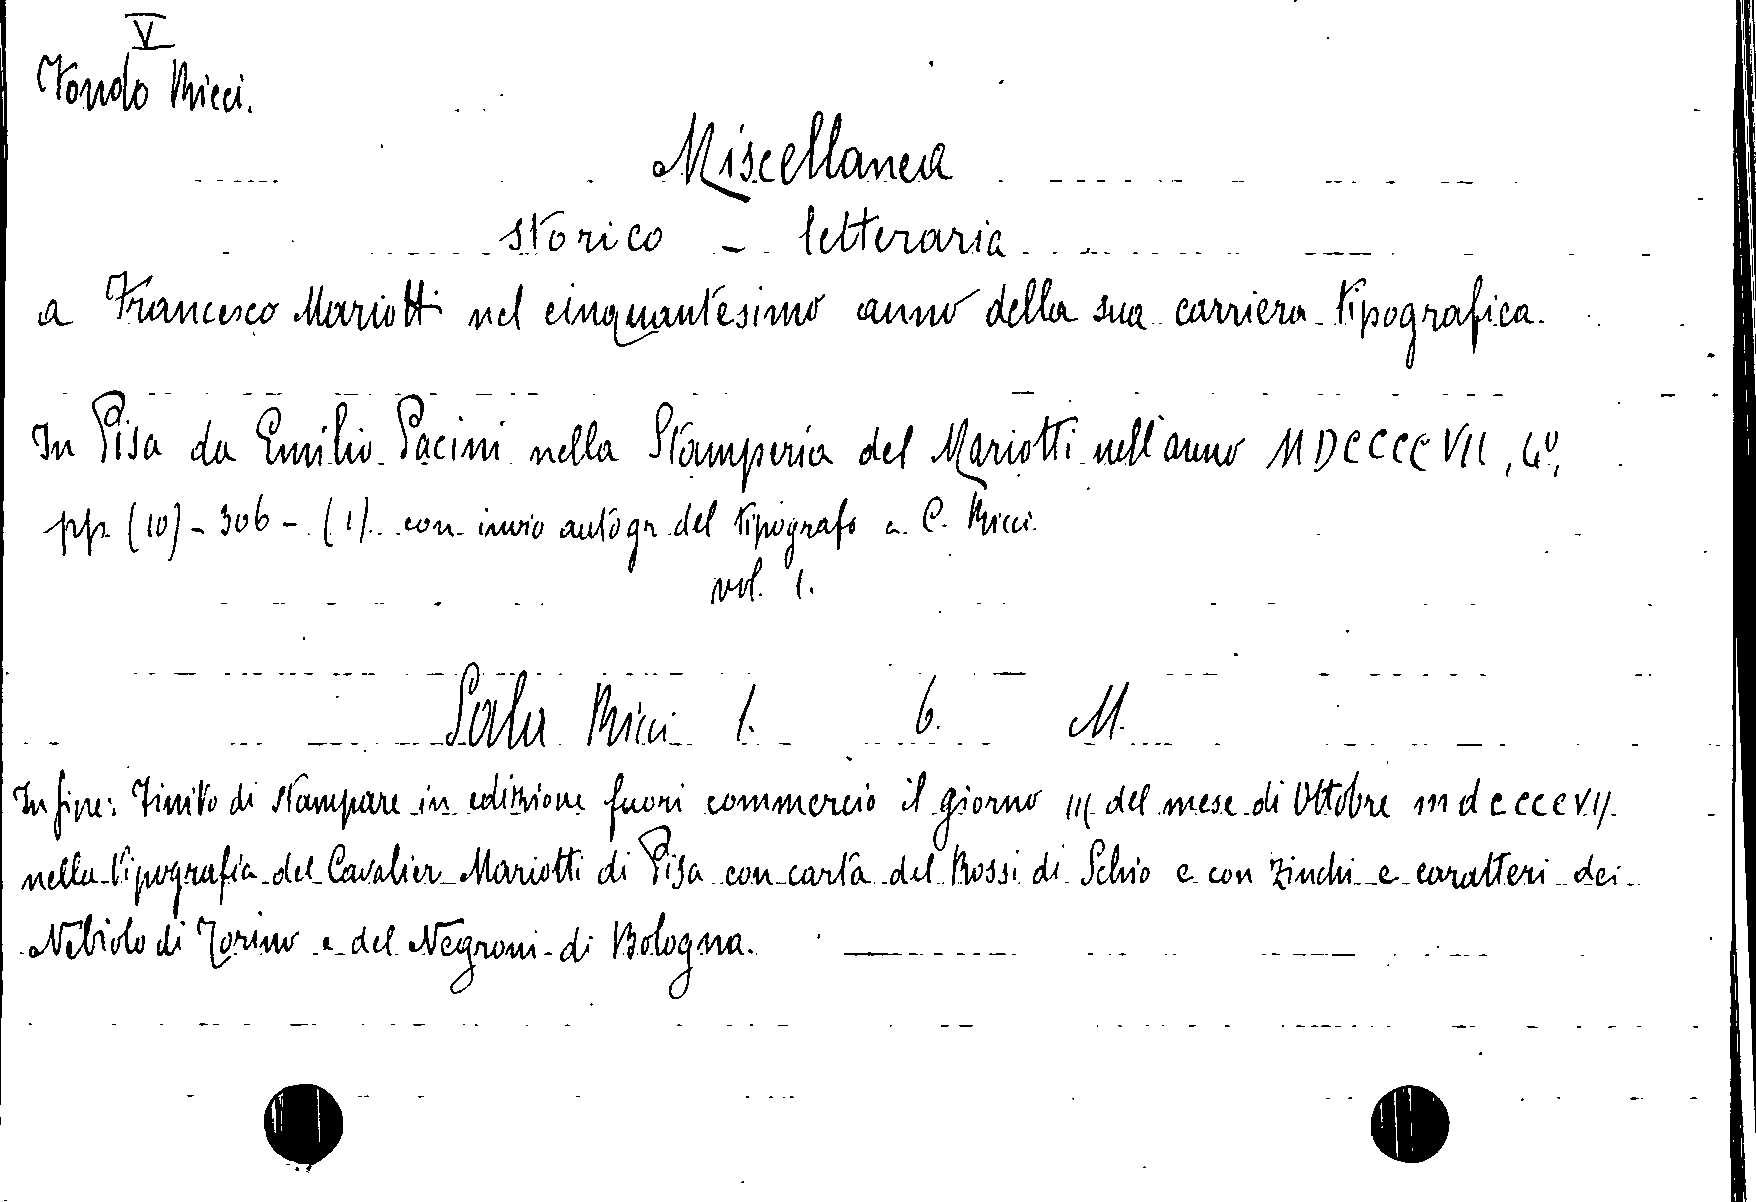 V
Fondo Ricci.
Miscellanea
storico - letteraria
a Francesco Mariotti nel cinquantesimo anno della sua carriera tipografica.
In Pisa da Emilio Pacini nella Stamperia del Mariotti nell'anno MDCCCCVII, 4º,
pp. (10) - 306 - (1) con invio autogr. del tipografo a C. Ricci.
vol. 1.
Sala Ricci 1. 6. M.
In fine: Finito di stampare in edizione fuori commercio il giorno III del mese di Ottobre mdccccVII.
nella tipografia del Cavalier Mariotti di Pisa con carta del Rossi di Schio e con zinchi e caratteri dei
Nebiolo di Torino e del Negroni di Bologna.